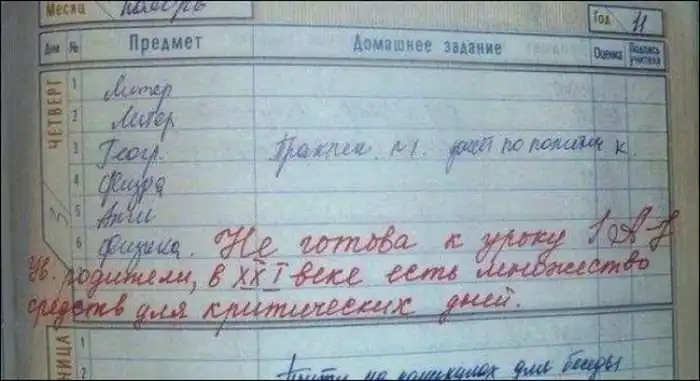 Месяц ноябрь Год 11
Дни № Предмет Домашнее задание Оценка Подпись учителя
ЧЕТВЕРГ 3
1 Литер
2 Литер
3 Геогр. Практич. №1. по политич к.
4 Физра
5 Англ
6 Физика. Не готова к уроку
Ув. родители, в XXI веке есть множество
средств для критических дней.
1
2 на каникулах для беседы